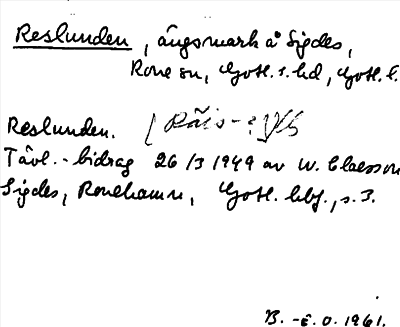 Reslunden, ängsmark å Sigdes,
Rone sn, Gotl. s. hd, Gotl. l.
Reslunden. [Räis-
Tävl.-bidrag 26/3 1949 av W. Claesson
Sigdes, Ronehamn, Gotl. hbf., s. 3.
B.-E. O. 1961.